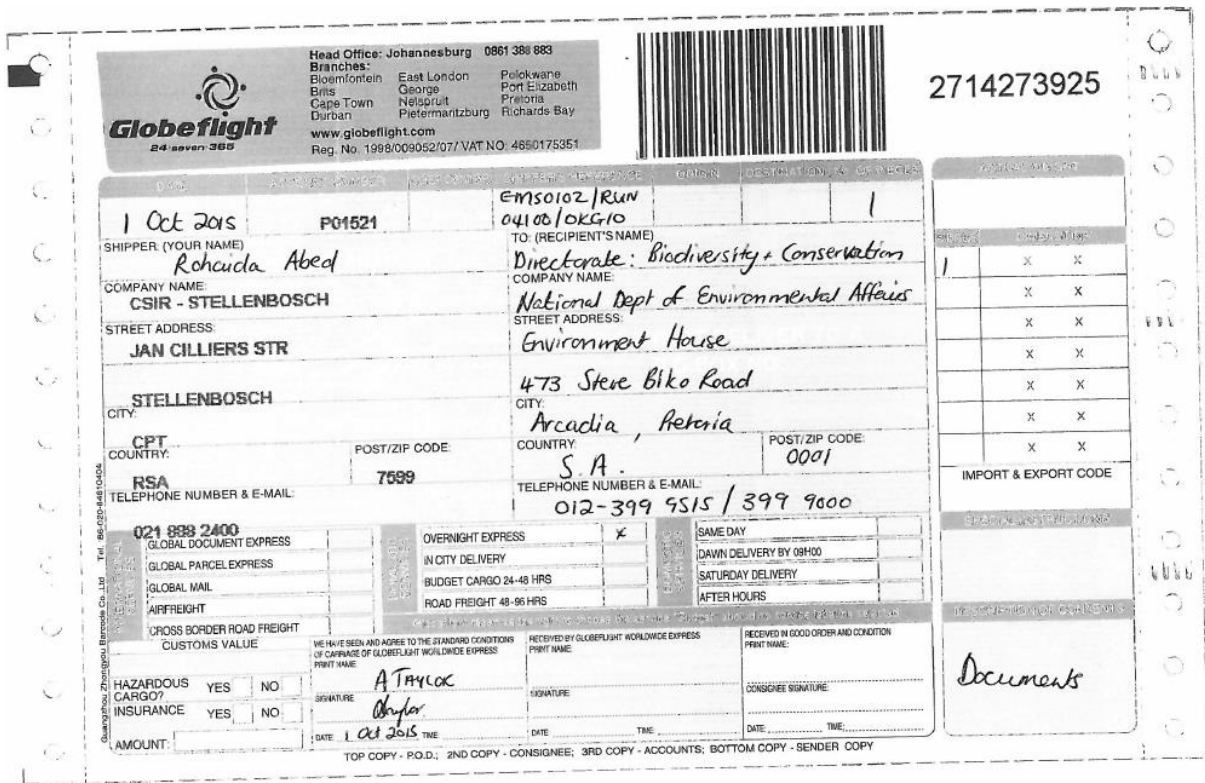 Head Office: Johannesburg 0861 388 883
Branches:
Bloemfontein East London Polokwane
Brits George Port Elizabeth
Cape Town Nelspruit Pretoria
Durban Pietermaritzburg Richards Bay
www.globeflight.com
Reg. No. 1998/009052/07/ VAT NO: 4650175351
Globeflight
24 seven 365
2714273925
DATE ACCOUNT NUMBER SHIPPER'S REFERENCE ORIGIN DESTINATION NO. OF PIECES
1 Oct 2015 P01521 EMS0102/RUN
04100/OKG10 1
SHIPPER: (YOUR NAME)
Rohaida Abed
COMPANY NAME:
CSIR - STELLENBOSCH
STREET ADDRESS:
JAN CILLIERS STR
STELLENBOSCH
CITY:
CPT
COUNTRY: POST/ZIP CODE:
RSA 7599
TELEPHONE NUMBER & E-MAIL:
021 888 2400
TO: (RECIPIENT'S NAME)
Directorate: Biodiversity + Conservation
COMPANY NAME:
National Dept of Environmental Affairs
STREET ADDRESS:
Environment House
473 Steve Biko Road
CITY:
Arcadia, Pretoria
COUNTRY: POST/ZIP CODE:
S.A. 0001
TELEPHONE NUMBER & E-MAIL:
012-399 9515 / 399 9000
1 X X
X X
X X
X X
X X
X X
X X
IMPORT & EXPORT CODE
SPECIAL INSTRUCTIONS
GLOBAL DOCUMENT EXPRESS
GLOBAL PARCEL EXPRESS
GLOBAL MAIL
AIRFREIGHT
CROSS BORDER ROAD FREIGHT
OVERNIGHT EXPRESS X
IN CITY DELIVERY
BUDGET CARGO 24-48 HRS
ROAD FREIGHT 48-96 HRS
SAME DAY
DAWN DELIVERY BY 09H00
SATURDAY DELIVERY
AFTER HOURS
CUSTOMS VALUE
HAZARDOUS CARGO? YES NO
INSURANCE YES NO
AMOUNT:
WE HAVE SEEN AND AGREE TO THE STANDARD CONDITIONS
OF CARRIAGE OF GLOBEFLIGHT WORLDWIDE EXPRESS
PRINT NAME
A TAYLOR
SIGNATURE
DATE 1 Oct 2015 TIME
RECEIVED BY GLOBEFLIGHT WORLDWIDE EXPRESS
PRINT NAME
SIGNATURE
DATE TIME
RECEIVED IN GOOD ORDER AND CONDITION
PRINT NAME:
CONSIGNEE SIGNATURE:
DATE: TIME:
DESCRIPTION OF CONTENTS
Documents
TOP COPY - P.O.D.; 2ND COPY - CONSIGNEE; 3RD COPY - ACCOUNTS; BOTTOM COPY - SENDER COPY